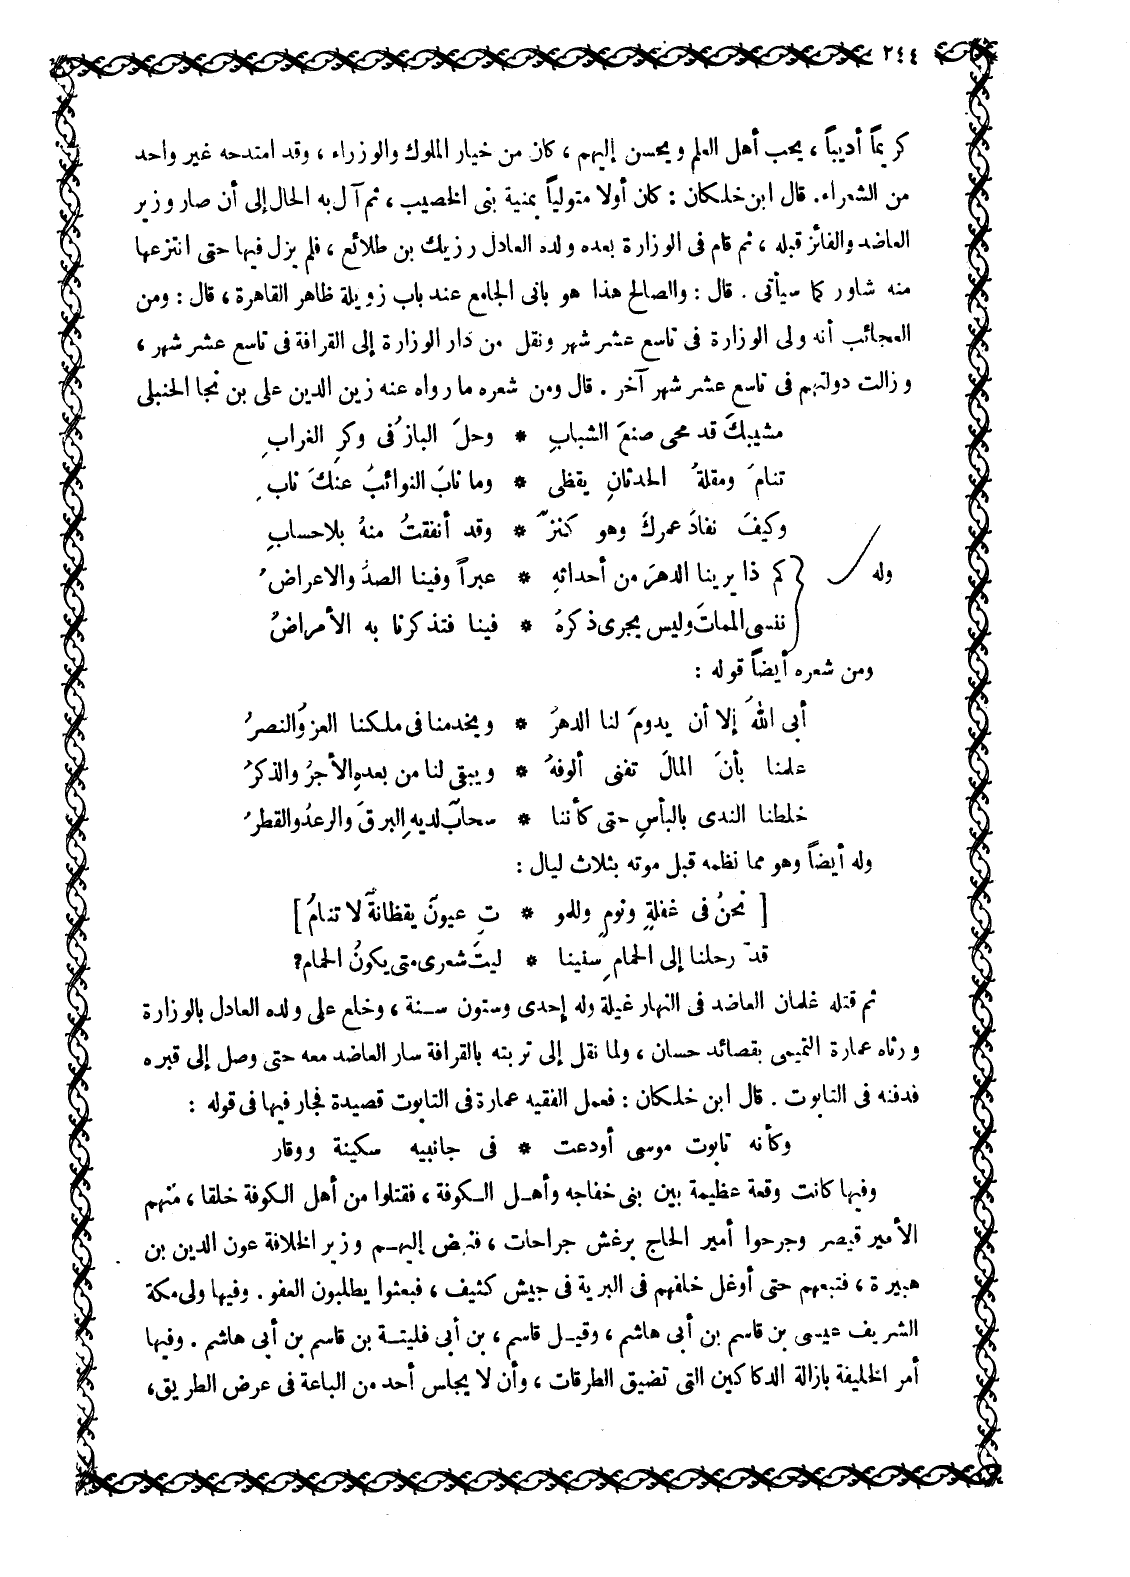 ٢٤٤
كريماً أديباً ، يحب أهل العلم ويحسن إليهم ، كان من خيار الملوك والوزراء ، وقد امتدحه غير واحد
من الشعراء. قال ابن خلكان : كان أولا متولياً بمنية بنى الخصيب ، ثم آل به الحال إلى أن صار وزير
العاضد والفائز قبله ، ثم قام فى الوزارة بعده ولده العادل رزيك بن طلائع ، فلم يزل فيها حتى انتزعها
منه شاور كما سيأتى . قال : والصالح هذا هو بانى الجامع عند باب زويلة ظاهر القاهرة ، قال : ومن
العجائب أنه ولى الوزارة فى تاسع عشر شهر ونقل من دار الوزارة إلى القرافة فى تاسع عشر شهر ،
وزالت دولتهم فى تاسع عشر شهر آخر . قال ومن شعره ما رواه عنه زين الدين على بن نجا الحنبلى
مشيبكَ قد محى صنعَ الشبابِ * وحلَ البازُ فى وكرِ الغرابِ
تنامَ ومقلةُ الحدثانِ يقظى * وما نابَ النوائبُ عنكَ نابِ
وكيفَ نفادَ عمركَ وهو كنزٌ * وقد أنفقتُ منهُ بلاحسابِ
وله كم ذا يرينا الدهرَ من أحداثهِ * عبراً وفينا الصدُّ والاعراضُ
ننسى المماتَ وليس يجرى ذكرهُ * فينا فتذكرنا به الأمراضُ
ومن شعره أيضاً قوله :
أبى اللهُ إلا أن يدومَ لنا الدهرُ * ويخدمنا فى ملكنا العزُ والنصرُ
علمنا بأنَ المالَ تفنى ألوفهُ * ويبقى لنا من بعدهِ الأجرُ والذكرُ
خلطنا الندى بالبأسِ حتى كأننا * سحابٌ لديهِ البرقَ والرعدُ والقطرُ
وله أيضاً وهو مما نظمه قبل موته بثلاث ليال :
[ نحنُ فى غفلةٍ ونومٍ وللمو * تِ عيونٌ يقظانةٌ لا تنامُ ]
قدّ رحلنا إلى الحمامِ سنينا * ليتَ شعرى متى يكونُ الحمام؟
ثم قتله غلمان العاضد فى النهار غيلة وله إحدى وستون سـنة ، وخلع على ولده العادل بالوزارة
ورثاه عمارة التميمى بقصائد حسان ، ولما نقل إلى تربته بالقرافة سار العاضد معه حتى وصل إلى قبره
فدفنه فى التابوت . قال ابن خلكان : فعمل الفقيه عمارة فى التابوت قصيدة فجار فيها فى قوله :
وكأنه تابوت موسى أودعت * فى جانبيه سكينة ووقار
وفيها كانت وقعة عظيمة بين بنى خفاجه وأهـل الـكوفة ، فقتلوا من أهل الـكوفة خلقا ، منهم
الأمير قيصر وجرحوا أمير الحاج برغش جراحات ، فنهض إليهـم وزير الخلافة عون الدين بن
هبيرة ، فتبعهم حتى أوغل خلفهم فى البرية فى جيش كثيف ، فبعثوا يطلبون العفو . وفيها ولى مكة
الشريف عيسى بن قاسم بن أبى هاشم ، وقيـل قاسم ، بن أبى فليتـة بن قاسم بن أبى هاشم . وفيها
أمر الخليفة بازالة الدكاكين التى تضيق الطرقات ، وأن لا يجلس أحد من الباعة فى عرض الطريق،